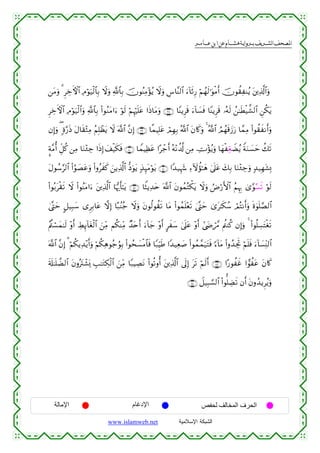 المصحف الشريف برواية هشام عن ابن عامر
وَٱلَّذِينَ يُنفِقُونَ أَمْوَٰلَهُمْ رِئَآءَ ٱلنَّاسِ وَلَا يُؤْمِنُونَ بِٱللَّهِ وَلَا بِٱلْيَوْمِ ٱلْأَخِرِ ۗ وَمَن
يَكُنِ ٱلشَّيْطَٰنُ لَهُۥ قَرِينًا فَسَآءَ قَرِينًا وَمَاذَا عَلَيْهِمْ لَوْ ءَامَنُوا۟ بِٱللَّهِ وَٱلْيَوْمِ ٱلْأَخِرِ
وَأَنفَقُوا۟ مِمَّا رَزَقَهُمُ ٱللَّهُ ۚ وَكَانَ ٱللَّهُ بِهِمْ عَلِيمًا إِنَّ ٱللَّهَ لَا يَظْلِمُ مِثْقَالَ ذَرَّةٍ ۖ وَإِن
تَكُ حَسَنَةً يُضَعِّفْهَا وَيُؤْتِ مِن لَّدُنْهُ أَجْرًا عَظِيمًا فَكَيْفَ إِذَا جِئْنَا مِن كُلِّ أُمَّةٍۭ
بِشَهِيدٍ وَجِئْنَا بِكَ عَلَىٰ هَٰٓؤُلَآءِ شَهِيدًا يَوْمَئِذٍ يَوَدُّ ٱلَّذِينَ كَفَرُوا۟ وَعَصَوُا۟ ٱلرَّسُولَ
لَوْ تَسَّوَّىٰ بِهِمُ ٱلْأَرْضُ وَلَا يَكْتُمُونَ ٱللَّهَ حَدِيثًا يَٰٓأَيُّهَا ٱلَّذِينَ ءَامَنُوا۟ لَا تَقْرَبُوا۟
ٱلصَّلَوٰةَ وَأَنتُمْ سُكَٰرَىٰ حَتَّىٰ تَعْلَمُوا۟ مَا تَقُولُونَ وَلَا جُنُبًا إِلَّا عَابِرِى سَبِيلٍ حَتَّىٰ
تَغْتَسِلُوا۟ ۚ وَإِن كُنتُم مَّرْضَىٰٓ أَوْ عَلَىٰ سَفَرٍ أَوْ جَآءَ أَحَدٌ مِّنكُم مِّنَ ٱلْغَآئِطِ أَوْ لَٰمَسْتُمُ
ٱلنِّسَآءَ فَلَمْ تَجِدُوا۟ مَآءً فَتَيَمَّمُوا۟ صَعِيدًا طَيِّبًا فَٱمْسَحُوا۟ بِوُجُوهِكُمْ وَأَيْدِيكُمْ ۗ إِنَّ ٱللَّهَ
كَانَ عَفُوًّا غَفُورًا أَلَمْ تَرَ إِلَى ٱلَّذِينَ أُوتُوا۟ نَصِيبًا مِّنَ ٱلْكِتَٰبِ يَشْتَرُونَ ٱلضَّلَٰلَةَ
وَيُرِيدُونَ أَن تَضِلُّوا۟ ٱلسَّبِيلَ
الحرف المخالف لحفص الإدغام الإمالة
الشبكة الإسلامية www.islamweb.net